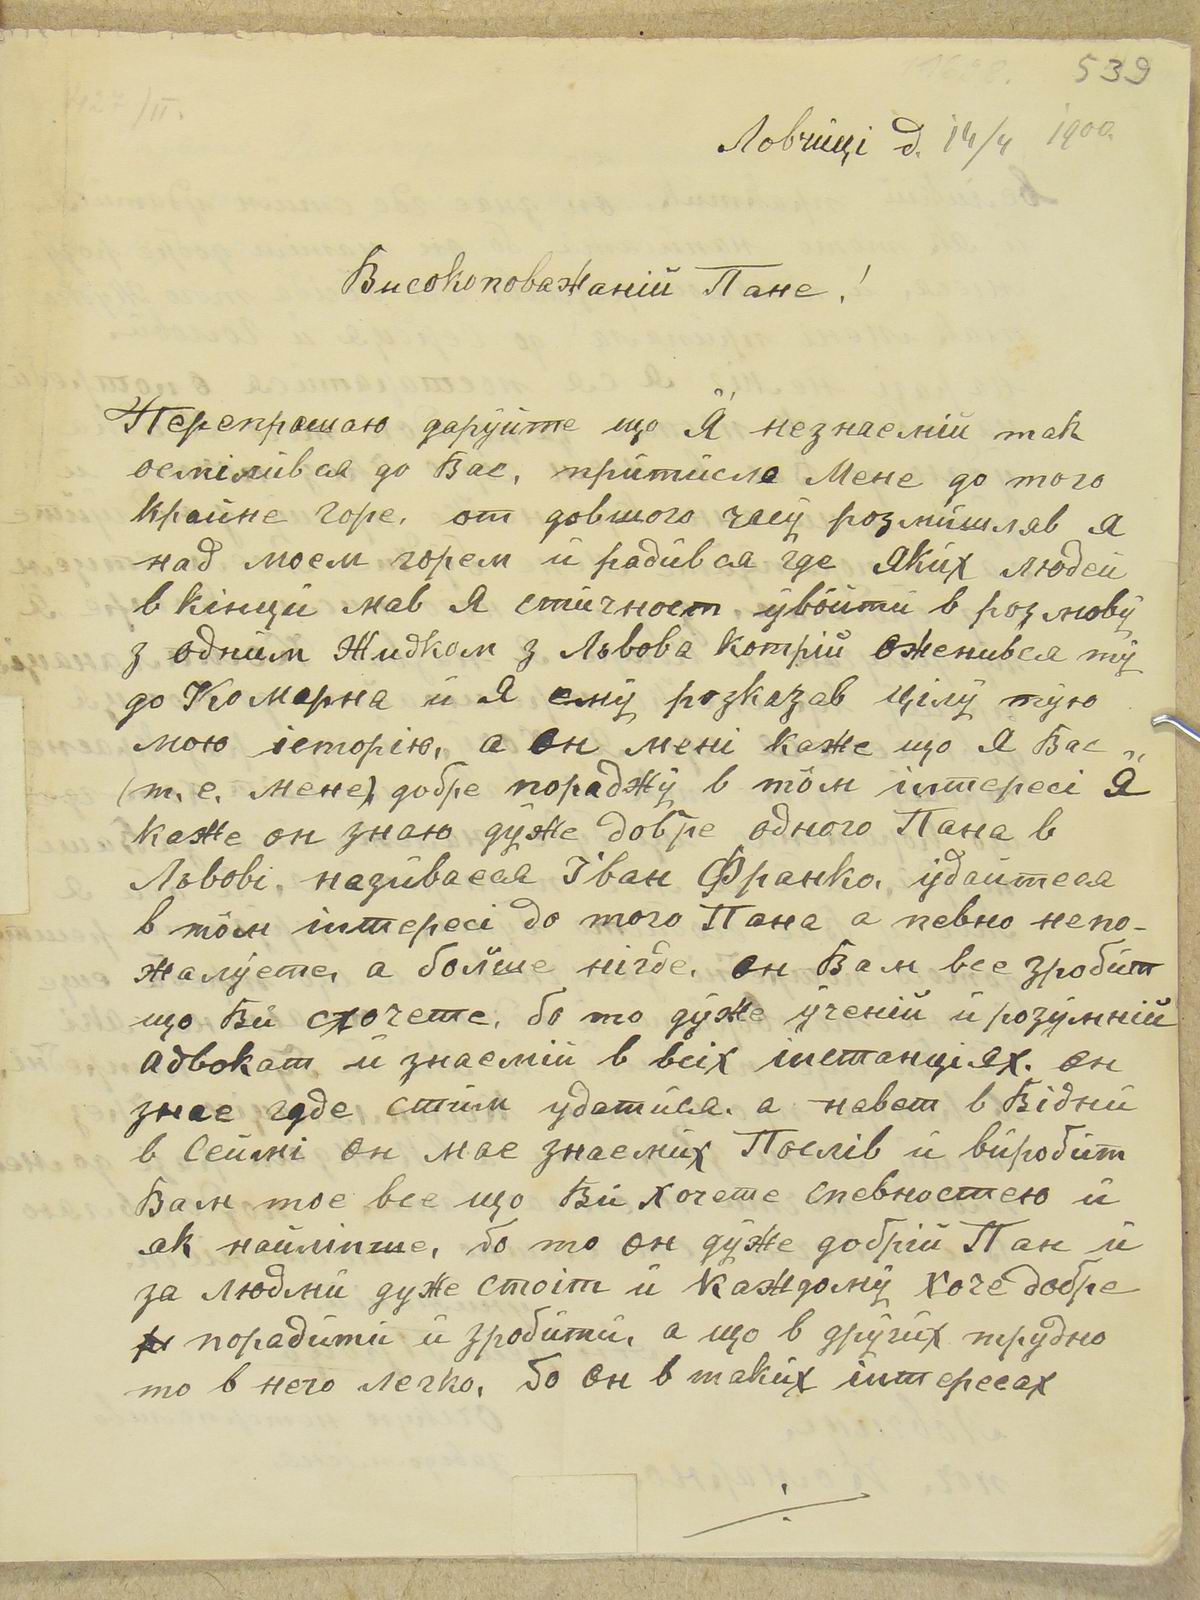 539
Ловчиці д. 14/4 1900.
Високоповажаній Пане!
Перепрошаю даруйте що Я незнаемій так
осмілився до Вас, притисло Мене до того
крайне горе, от довшого часу розмишляв Я
над моем горем и радився где яких людей
в кінци мав Я стичност увойти в розмову
з одним Жидком з Львова котрій оженився ту
до Комарна и Я ему розказав цілу тую
мою історію, а он мені каже що Я Вас
(т. е. мене) добре пораджу в том інтересі "Я"
каже он знаю дуже добре одного Пана в
Львові, називаеся Іван Франко, удайтеся
в том інтересі до того Пана а певно непо-
жалуете, а больше нігде, он Вам все зробит
що Ви схочете, бо то дуже ученій и розумній
адвокат и знаемій в всіх інстанціях. он
знае где стим удатися, а навет в Відни
в Сеймі он мае знаемих Послів и виробит
Вам тое все що Ви хочете спевностею и
як найліпше, бо то он дуже добрій Пан и
за людми дуже стоіт и каждому хоче добре
порадити и зробити, а що в других трудно
то в него легко, бо он в таких інтересах